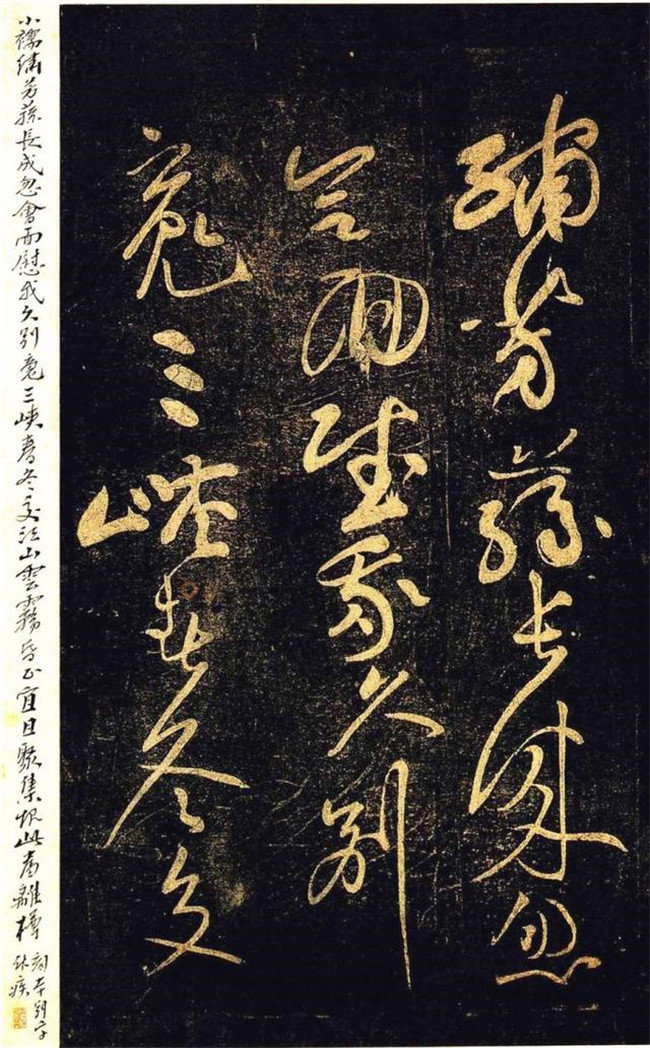 繡芳蓀長成忽
會面慰我久別
魂三峽春冬交
小襦繡芳蓀長成忽會面慰我久別魂三峽春冬交江山雲霧昏正宜且聚集恨此當離樽
本別字
疾